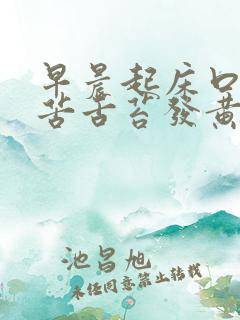 早晨起床口
苦舌苔發黃
池昌旭
未经同意禁止转载